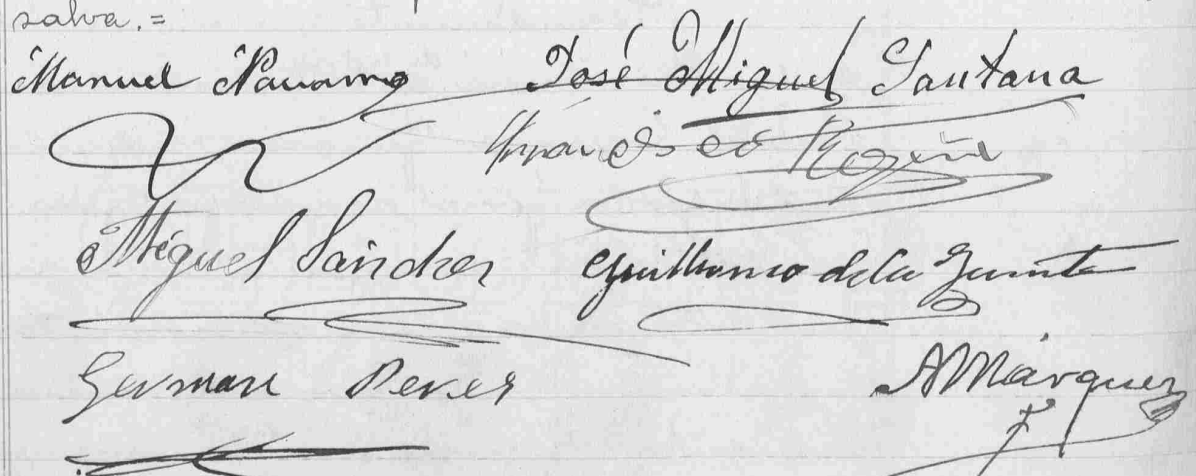 salva.=
Manuel Navarro José Miguel Santana
Francisco
Miguel Sánchez Guillermo de la
German Perez AMárquez